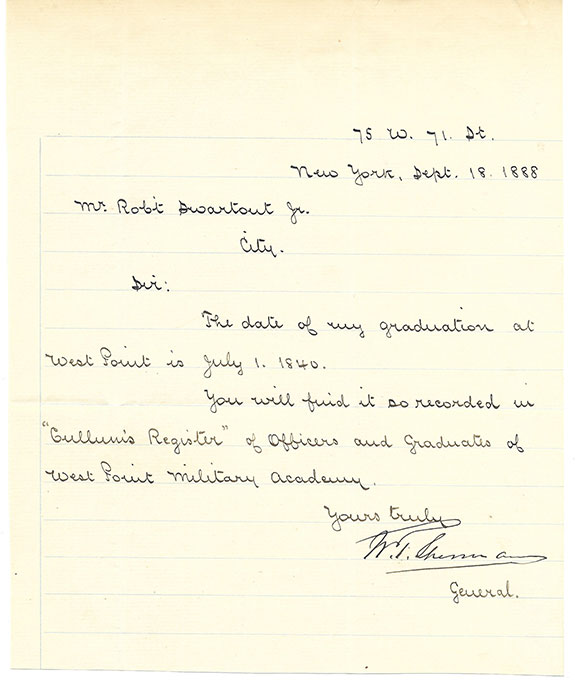 75 W. 71. St.
New York, Sept. 18. 1888
Mr. Rob't Swartout Jr.
City.
Sir:
The date of my graduation at
West Point is July 1. 1840.
You will find it so recorded in
"Cullum's Register" of Officers and Graduates of
West Point Military Academy.
Yours truly
W. T. Sherman
General.